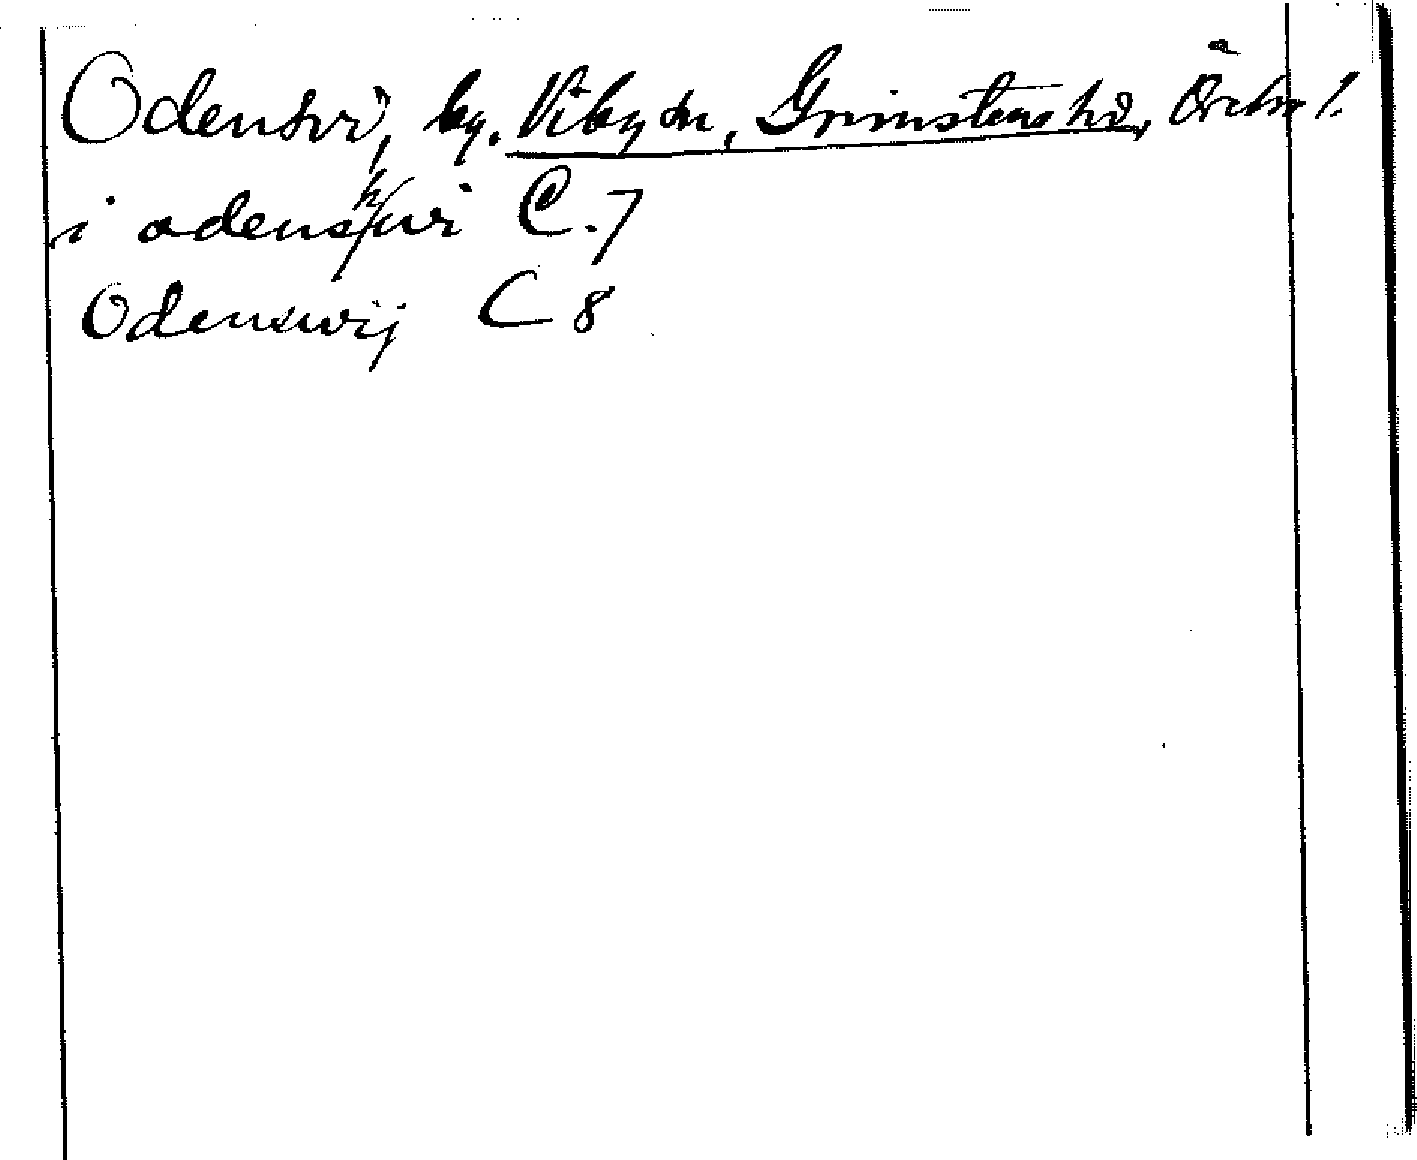 Odensvi, by. Viby sn, Grimstens hd, Örebro l.
i odenshwi C.7
Odenswij C 8